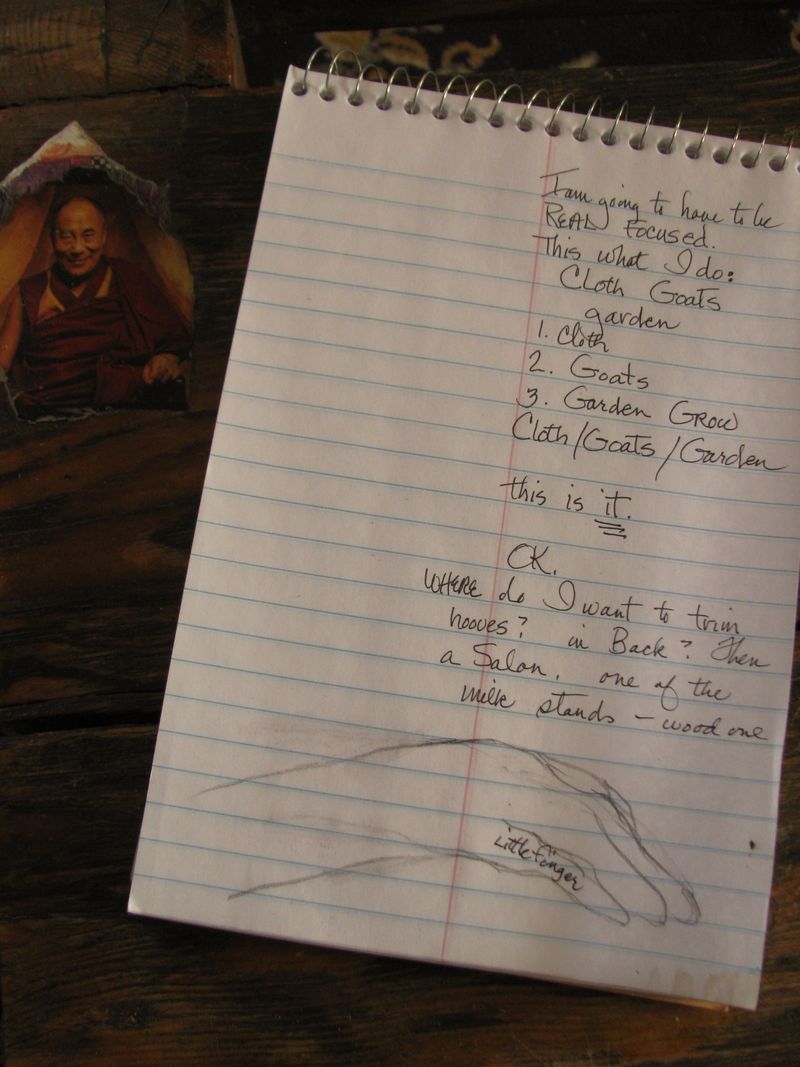 I am going to have to be
REAL FOCUSED.
This what I do:
Cloth Goats
garden
1. Cloth
2. Goats
3. Garden GROW
Cloth/Goats/Garden
this is it.
OK.
WHERE do I want to trim
hooves? in Back? Then
a Salon. one of the
milk stands - wood one
Little finger